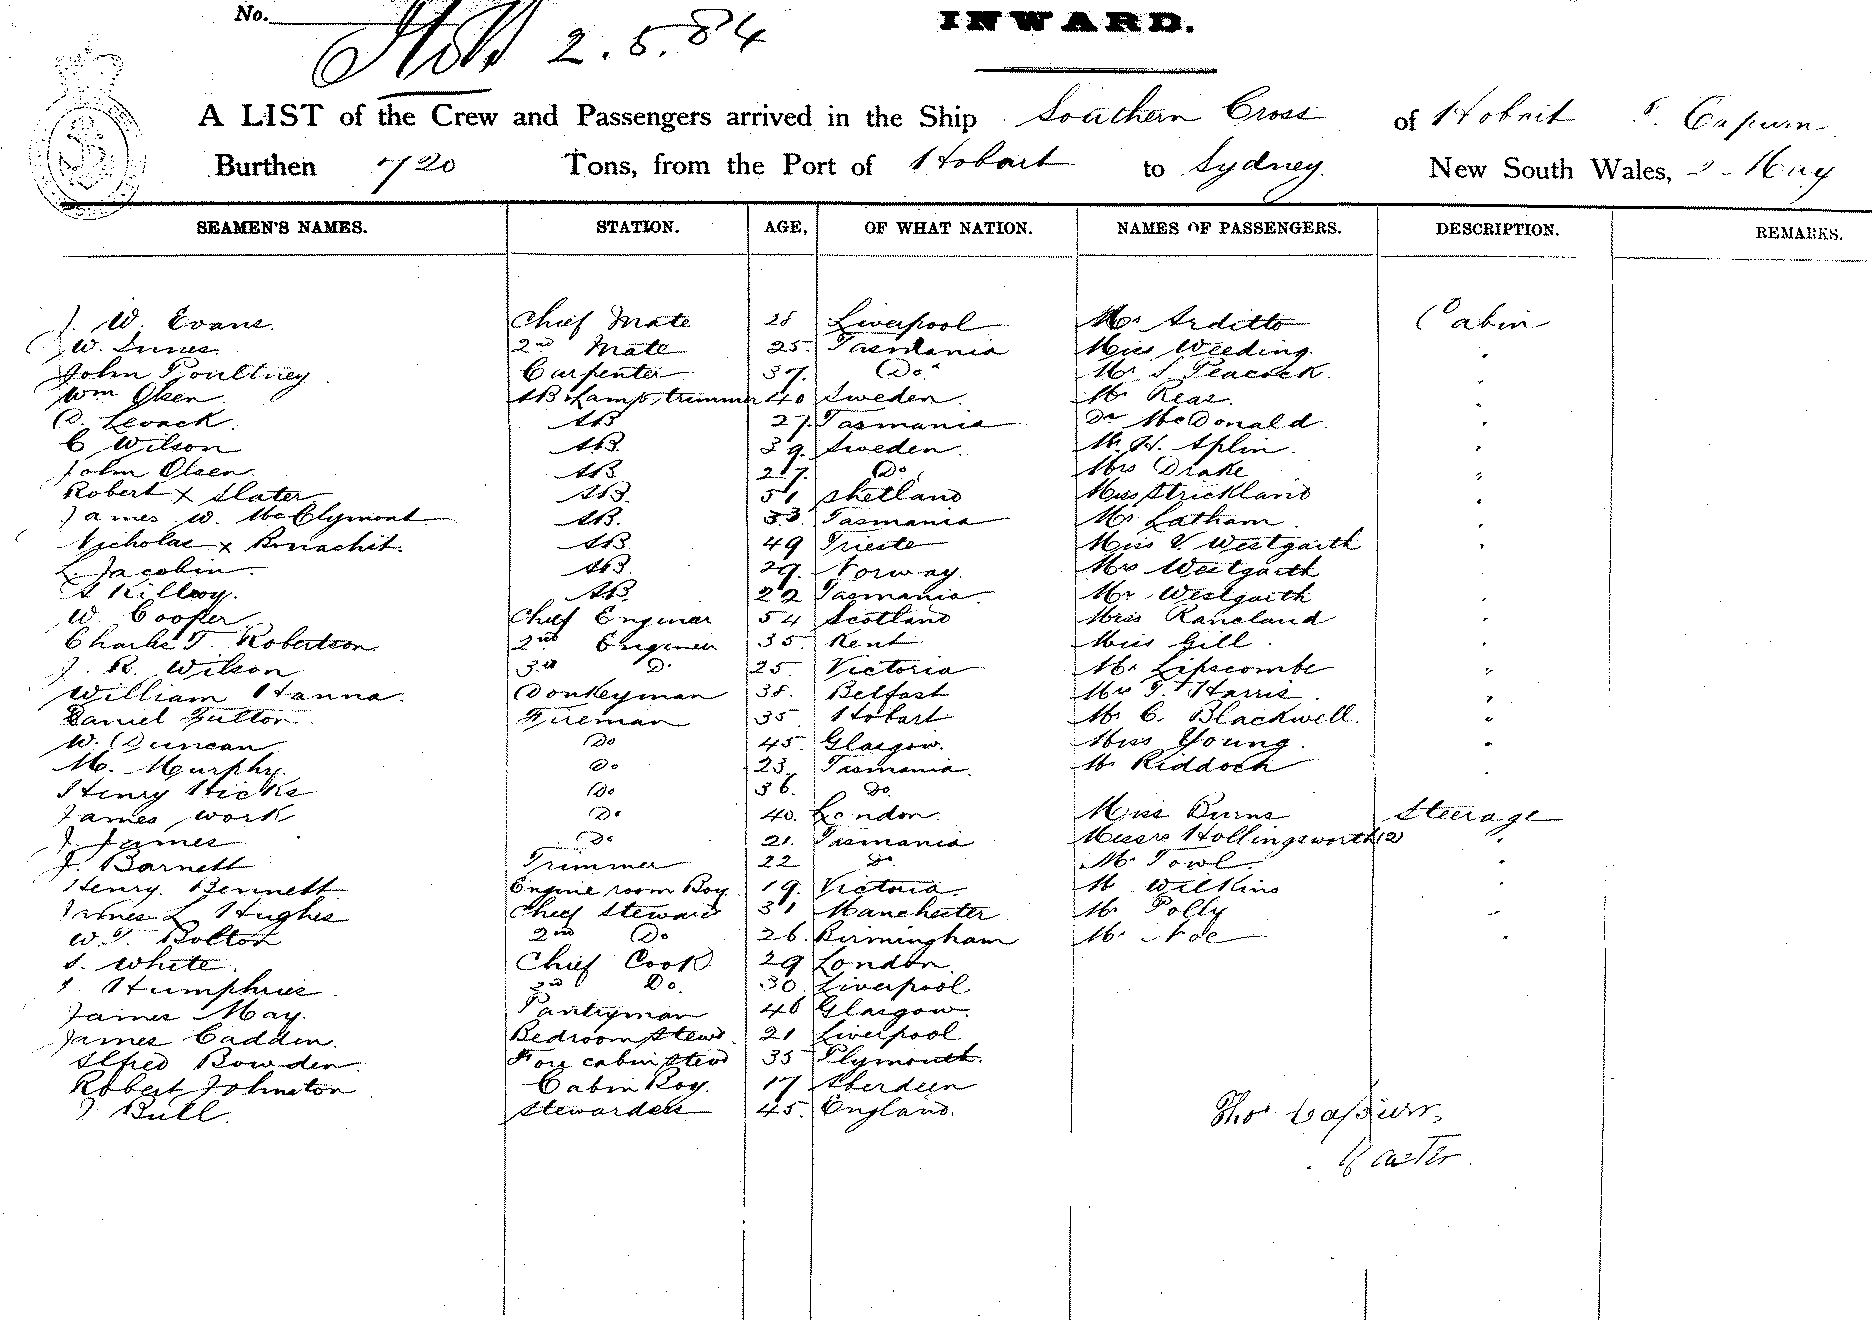 No.
2.5.84
INWARD.
A LIST of the Crew and Passengers arrived in the Ship Southern Cross of Hobart
Burthen 720 Tons, from the Port of Hobart to Sydney. New South Wales, 2 May
SEAMEN'S NAMES. STATION. AGE, OF WHAT NATION. NAMES OF PASSENGERS. DESCRIPTION. REMARKS.
J. W. Evans. Chief Mate 28 Liverpool Mr Arditto Cabin
W. Innes. 2nd Mate 25. Tasmania Miss Weeding "
John Poultney Carpenter 37. Do. Mr S Peacock. "
Wm Olsen AB & Lamp trimmer 40 Sweden. "
D. Levack. AB 27. Tasmania Dr McDonald "
C Wilson AB. 39. Sweden. Mr H. Aplin. "
John Olsen AB 27. Do Mrs Drake "
Robert x Slater AB. 51 Shetland Miss Strickland "
James W. McClymont AB. 33. Tasmania Mr Latham. "
Nicholas x AB 49 Trieste Miss V. Westgarth "
L Jacobin. AB. 29. Norway. Mrs Westgarth "
A Killroy. AB. 22 Tasmania. Mr Westgarth "
W. Cooper Chief Engineer 54 Scotland Miss "
Charles T. Robertson 2nd Engineer 35 Kent Miss Gill. "
J. R. Wilson 3rd D. 25 Victoria Mr Lipscombe "
William Hanna. Donkeyman 38. Belfast T. Harris. "
Daniel Fulton Fireman 35 Hobart Mr C. Blackwell. "
W. Duncan Do 45. Glasgow. Miss Young. "
M. Murphy. Do 23. Tasmania. Mr Riddoch "
Henry Hicks Do 36. Do.
James Work Do 40. London. Miss Burns Steerage
J. James Do 21. Tasmania Messrs Hollingsworth (2) "
J. Barnett Trimmer 22 Do Mr Towl. "
Henry. Bennett Engine room Boy. 19. Victoria. Mr Wilkins "
James L Hughes Chief Steward 31 Manchester Mr Polly "
W. T. Bolton 2nd Do 26. Birmingham Mr Noe "
S. White. Chief Cook 29 London.
Humphries. 2nd Do. 30. Liverpool
James May. Pantryman 46 Glasgow.
James Caddin. Bedroom Stewd. 21 Liverpool
Alfred Bowden. Fore cabin Stewd 35 Plymouth.
Robert Johnston Cabin Boy. 17 Aberdeen
J Bull. Stewardess 45. England.
Thos Capurn,
Master.